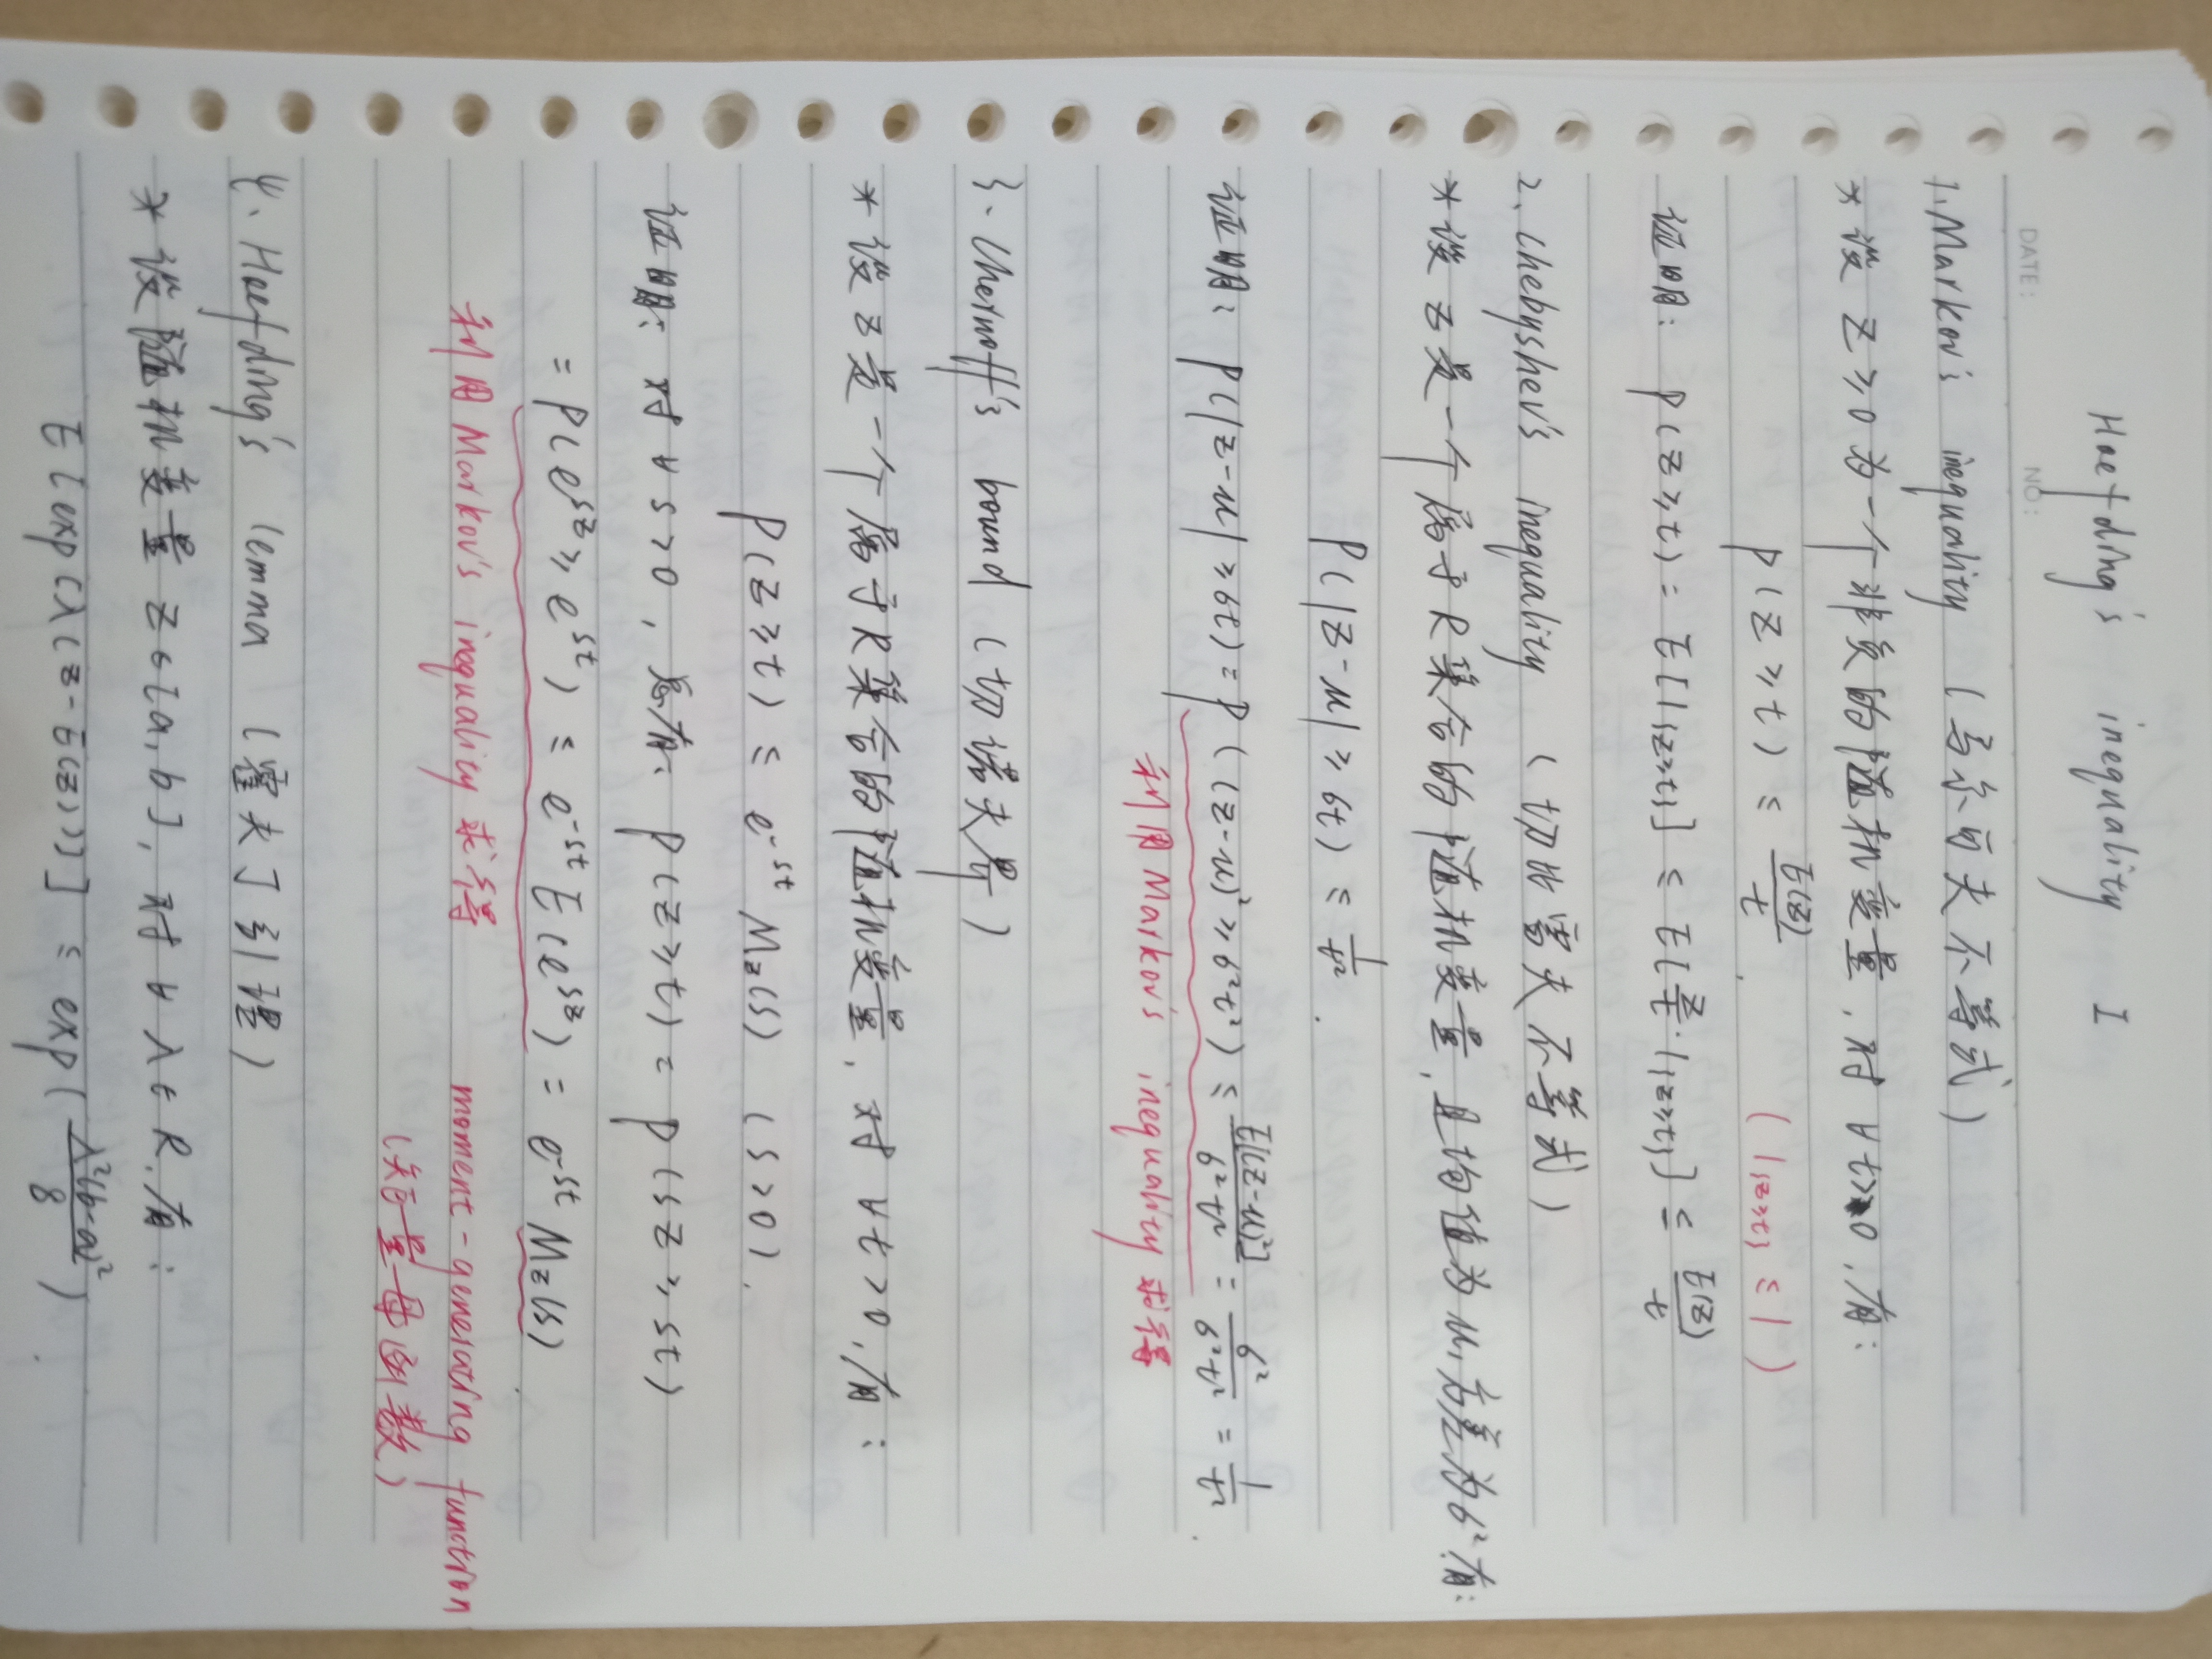 Hoefding's inequality I
DATE: NO:
1. Markov's inequality (马尔可夫不等式)
* 设 Z ≥ 0 为一个非负的随机变量, 对 ∀t>0, 有:
P(Z≥t) ≤ E(Z)/t. (1{Z≥t} ≤ 1)
证明: P(Z≥t) = E[1{Z≥t}] ≤ E[Z/t · 1{Z≥t}] ≤ E(Z)/t
2. Chebyshev's inequality (切比雪夫不等式)
* 设 Z是一个属于R集合的随机变量, 且均值为 μ, 方差为 σ² 有:
P(|Z-μ| ≥ σt) ≤ 1/t².
证明: P(|Z-μ| ≥ σt) = P((Z-μ)² ≥ σ²t²) ≤ E[(Z-μ)²]/σ²t² = σ²/σ²t² = 1/t².
利用Markov's inequality 求得
3. Chernoff's bound (切诺夫界)
* 设 Z是一个属于R集合的随机变量, 对 ∀t>0, 有:
P(Z≥t) ≤ e^-st Mz(s) (s>0).
证明: 对 ∀s>0, 总有: P(Z≥t) = P(sZ≥st)
= P(e^sZ ≥ e^st) ≤ e^-st E(e^sZ) = e^-st Mz(s).
利用Markov's inequality 求得 moment-generating function
(矩量母函数)
4. Hoefding's lemma (霍夫丁引理)
* 设随机变量 Z∈[a,b], 对 ∀λ∈R, 有:
E[exp(λ(Z-E(Z)))] ≤ exp(λ²(b-a)²/8).